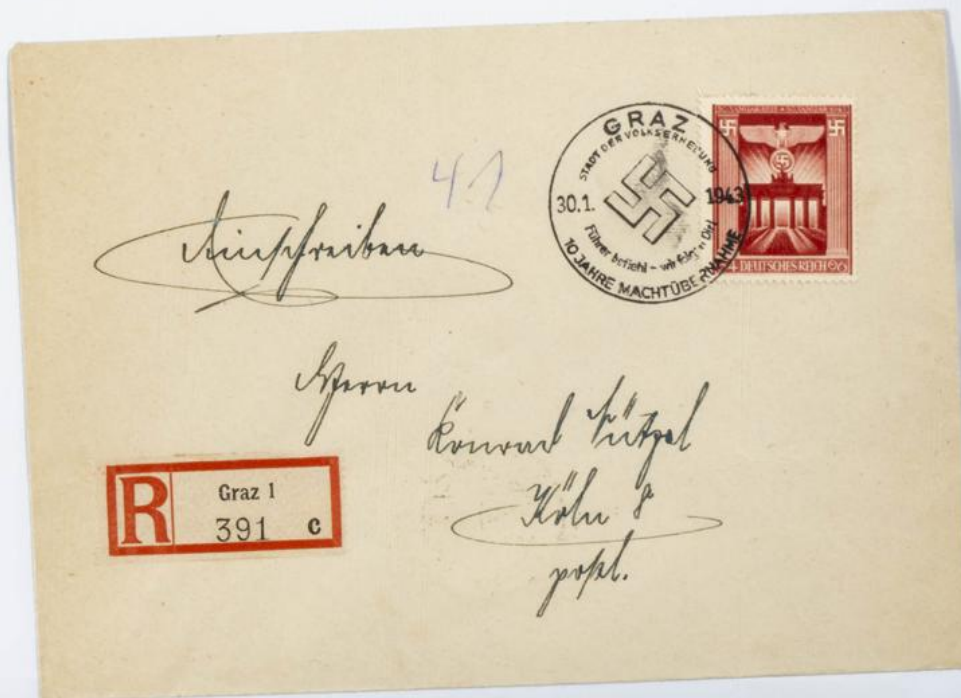 GRAZ
STADT DER VOLKSERHEBUNG
30.1. 1943
Führer befiehl - wir folgen Dir!
10 JAHRE MACHTÜBERNAHME
DEUTSCHES REICH
4.1
Einschreiben
Herrn
Konrad
Köln 8
postl.
R Graz 1
391 c